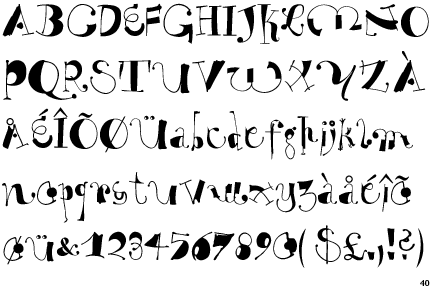 ABCDEFGHIJKLMNO
PQRSTUVWXYZÀ
ÅÉÎÕØÜabcdefghijklm
nopqrstuvwxyzàåéîõ
øü&1234567890($£.,!?)
40